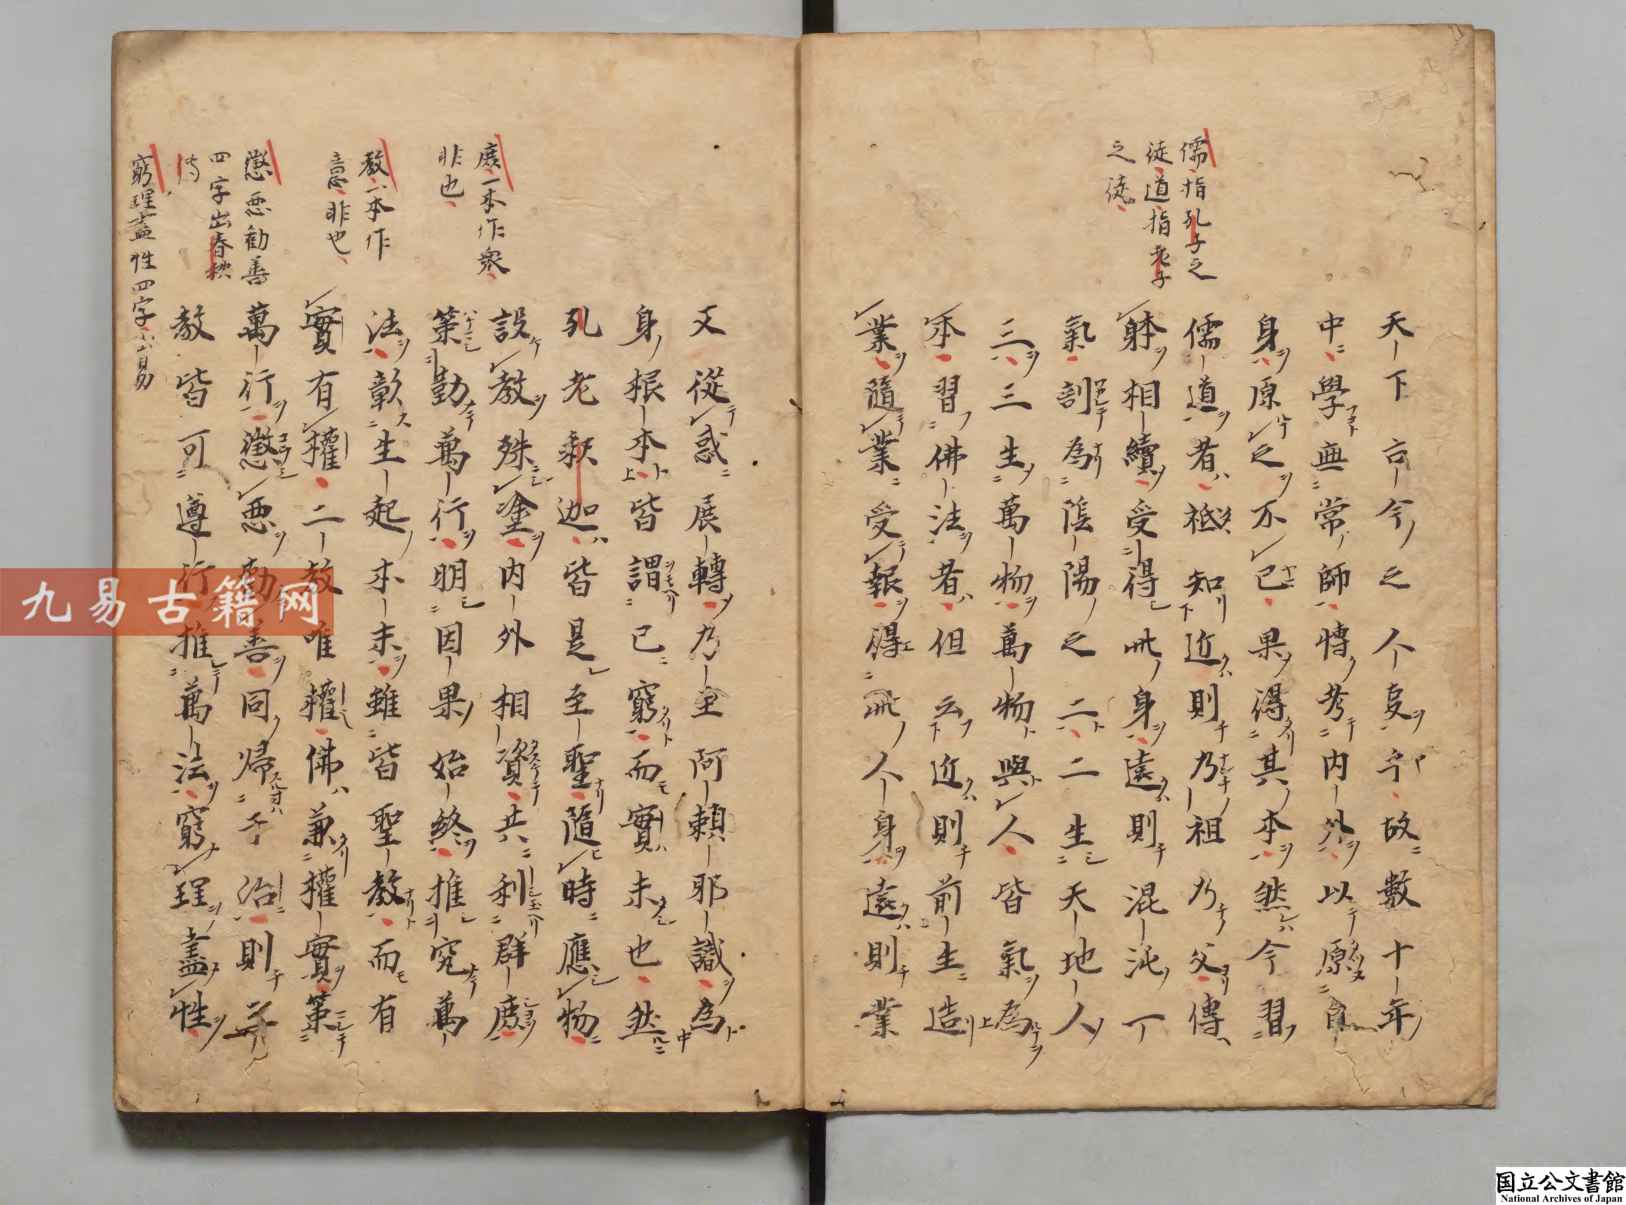 儒指孔子之
徒道指老子
之徒
天下古今之人事乎故數十年
中學無常師博考內外以原自
身原之不已果得其本然今習
儒道者祇知近則乃祖乃父傳
躰相續受得此身遠則混沌一
氣剖為陰陽之二二生天地人
三三生萬物萬物與人皆氣為
本習佛法者但云近則前生造
業隨業受報得此人身遠則業
廣一本作衆
非也
教一本作
意非也
懲惡勸善
四字出春秋
傳
窮理盡性四字出易
又從惑展轉乃至阿賴耶識為
身根本皆謂已窮而實未也然
孔老釋迦皆是至聖隨時應物
設教殊塗內外相資共利群庶
策勤萬行明因果始終推究萬
法彰生起本末雖皆聖教而有
實有權二教唯權佛兼權實策
萬行懲惡勸善同歸于治則三
教皆可遵行推萬法窮理盡性
九易古籍网
国立公文書館
National Archives of Japan